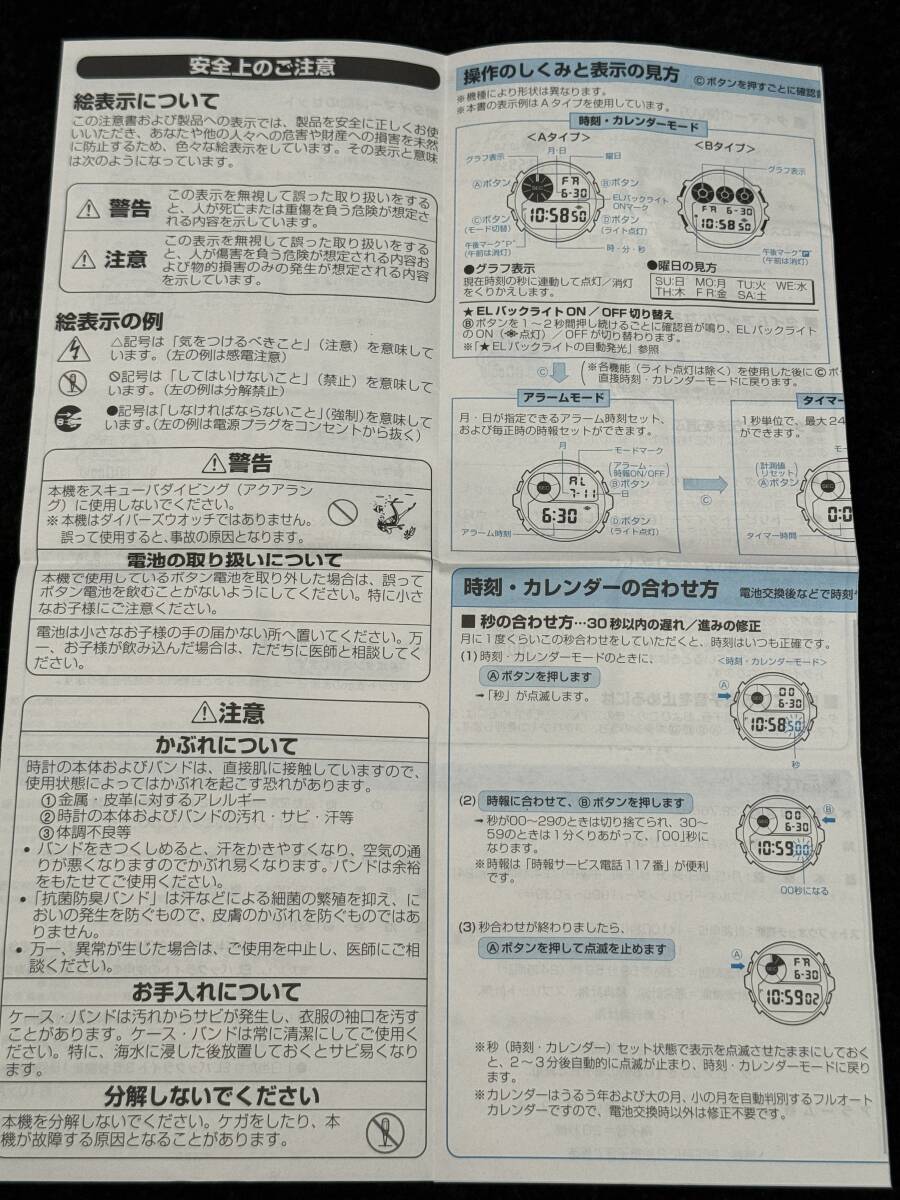 安全上のご注意
絵表示について
この注意書および製品への表示では、製品を安全に正しくお使
いいただき、あなたや他の人々への危害や財産への損害を未然
に防止するため、色々な絵表示をしています。その表示と意味
は次のようになっています。
警告
この表示を無視して誤った取り扱いをする
と、人が死亡または重傷を負う危険が想定さ
れる内容を示しています。
注意
この表示を無視して誤った取り扱いをする
と、人が傷害を負う危険が想定される内容お
よび物的損害のみの発生が想定される内容
を示しています。
絵表示の例
△記号は「気をつけるべきこと」（注意）を意味して
います。（左の例は感電注意）
🛇記号は「してはいけないこと」（禁止）を意味して
います。（左の例は分解禁止）
●記号は「しなければならないこと」（強制）を意味して
います。（左の例は電源プラグをコンセントから抜く）
⚠警告
本機をスキューバダイビング（アクアラン
グ）に使用しないでください。
※本機はダイバーズウオッチではありません。
誤って使用すると、事故の原因となります。
電池の取り扱いについて
本機で使用しているボタン電池を取り外した場合は、誤って
ボタン電池を飲むことがないようにしてください。特に小さ
なお子様にご注意ください。
電池は小さなお子様の手の届かない所へ置いてください。万
一、お子様が飲み込んだ場合は、ただちに医師と相談してく
ださい。
⚠注意
かぶれについて
時計の本体およびバンドは、直接肌に接触していますので、
使用状態によってはかぶれを起こす恐れがあります。
①金属・皮革に対するアレルギー
②時計の本体およびバンドの汚れ・サビ・汗等
③体調不良等
• バンドをきつくしめると、汗をかきやすくなり、空気の通
りが悪くなりますのでかぶれ易くなります。バンドは余裕
をもたせてご使用ください。
• 「抗菌防臭バンド」は汗などによる細菌の繁殖を抑え、に
おいの発生を防ぐもので、皮膚のかぶれを防ぐものではあ
りません。
• 万一、異常が生じた場合は、ご使用を中止し、医師にご相
談ください。
お手入れについて
ケース・バンドは汚れからサビが発生し、衣服の袖口を汚す
ことがあります。ケース・バンドは常に清潔にしてご使用く
ださい。特に、海水に浸した後放置しておくとサビ易くなり
ます。
分解しないでください
本機を分解しないでください。ケガをしたり、本
機が故障する原因となることがあります。
操作のしくみと表示の見方 Ⓒボタンを押すごとに確認
※機種により形状は異なります。
※本書の表示例はAタイプを使用しています。
時刻・カレンダーモード
<Aタイプ>
月・日
グラフ表示
曜日
Ⓐボタン
Ⓑボタン
ELバックライト
ONマーク
Ⓒボタン
（モード切替）
Ⓓボタン
（ライト点灯）
午後マーク"P"
（午前は消灯）
時・分・秒
SEC
FR
6-30
10:58 50
<Bタイプ>
グラフ表示
FR 6-30
10:58 50
午後マーク"P"
（午前は消灯）
●グラフ表示
現在時刻の秒に連動して点灯／消灯
をくりかえします。
●曜日の見方
SU:日 MO:月 TU:火 WE:水
TH:木 FR:金 SA:土
★ELバックライトON／OFF切り替え
Ⓑボタンを1〜2秒間押し続けるごとに確認音が鳴り、ELバックライト
のON（点灯）／OFFが切り替わります。
※「★ELバックライトの自動発光」参照
Ⓒ
※各機能（ライト点灯は除く）を使用した後にⒸボ
直接時刻・カレンダーモードに戻ります。
アラームモード
月・日が指定できるアラーム時刻セット、
および毎正時の時報セットができます。
月
モードマーク
（アラーム・
時報ON/OFF）
Ⓑボタン
日
Ⓓボタン
（ライト点灯）
アラーム時刻
SEC
AL
7-11
6:30
Ⓒ
タイマー
1秒単位で、最大24
ができます。
（計測値
リセット）
Ⓐボタン
タイマー時間
0:0
時刻・カレンダーの合わせ方 電池交換後などで時刻
■ 秒の合わせ方…30秒以内の遅れ／進みの修正
月に1度くらいこの秒合わせをしていただくと、時刻はいつも正確です。
(1) 時刻・カレンダーモードのときに、
Ⓐボタンを押します
→「秒」が点滅します。
<時刻・カレンダーモード>
Ⓐ
00
6-30
10:58 50
秒
(2) 時報に合わせて、Ⓑボタンを押します
→秒が00〜29のときは切り捨てられ、30〜
59のときは1分くりあがって、「00」秒に
なります。
※時報は「時報サービス電話117番」が便利
です。
Ⓑ
00
6-30
10:59 00
00秒になる
(3) 秒合わせが終わりましたら、
Ⓐボタンを押して点滅を止めます
Ⓐ
FR
6-30
10:59 02
※秒（時刻・カレンダー）セット状態で表示を点滅させたままにしておく
と、2〜3分後自動的に点滅が止まり、時刻・カレンダーモードに戻り
ます。
※カレンダーはうるう年および大の月、小の月を自動判別するフルオート
カレンダーですので、電池交換時以外は修正不要です。